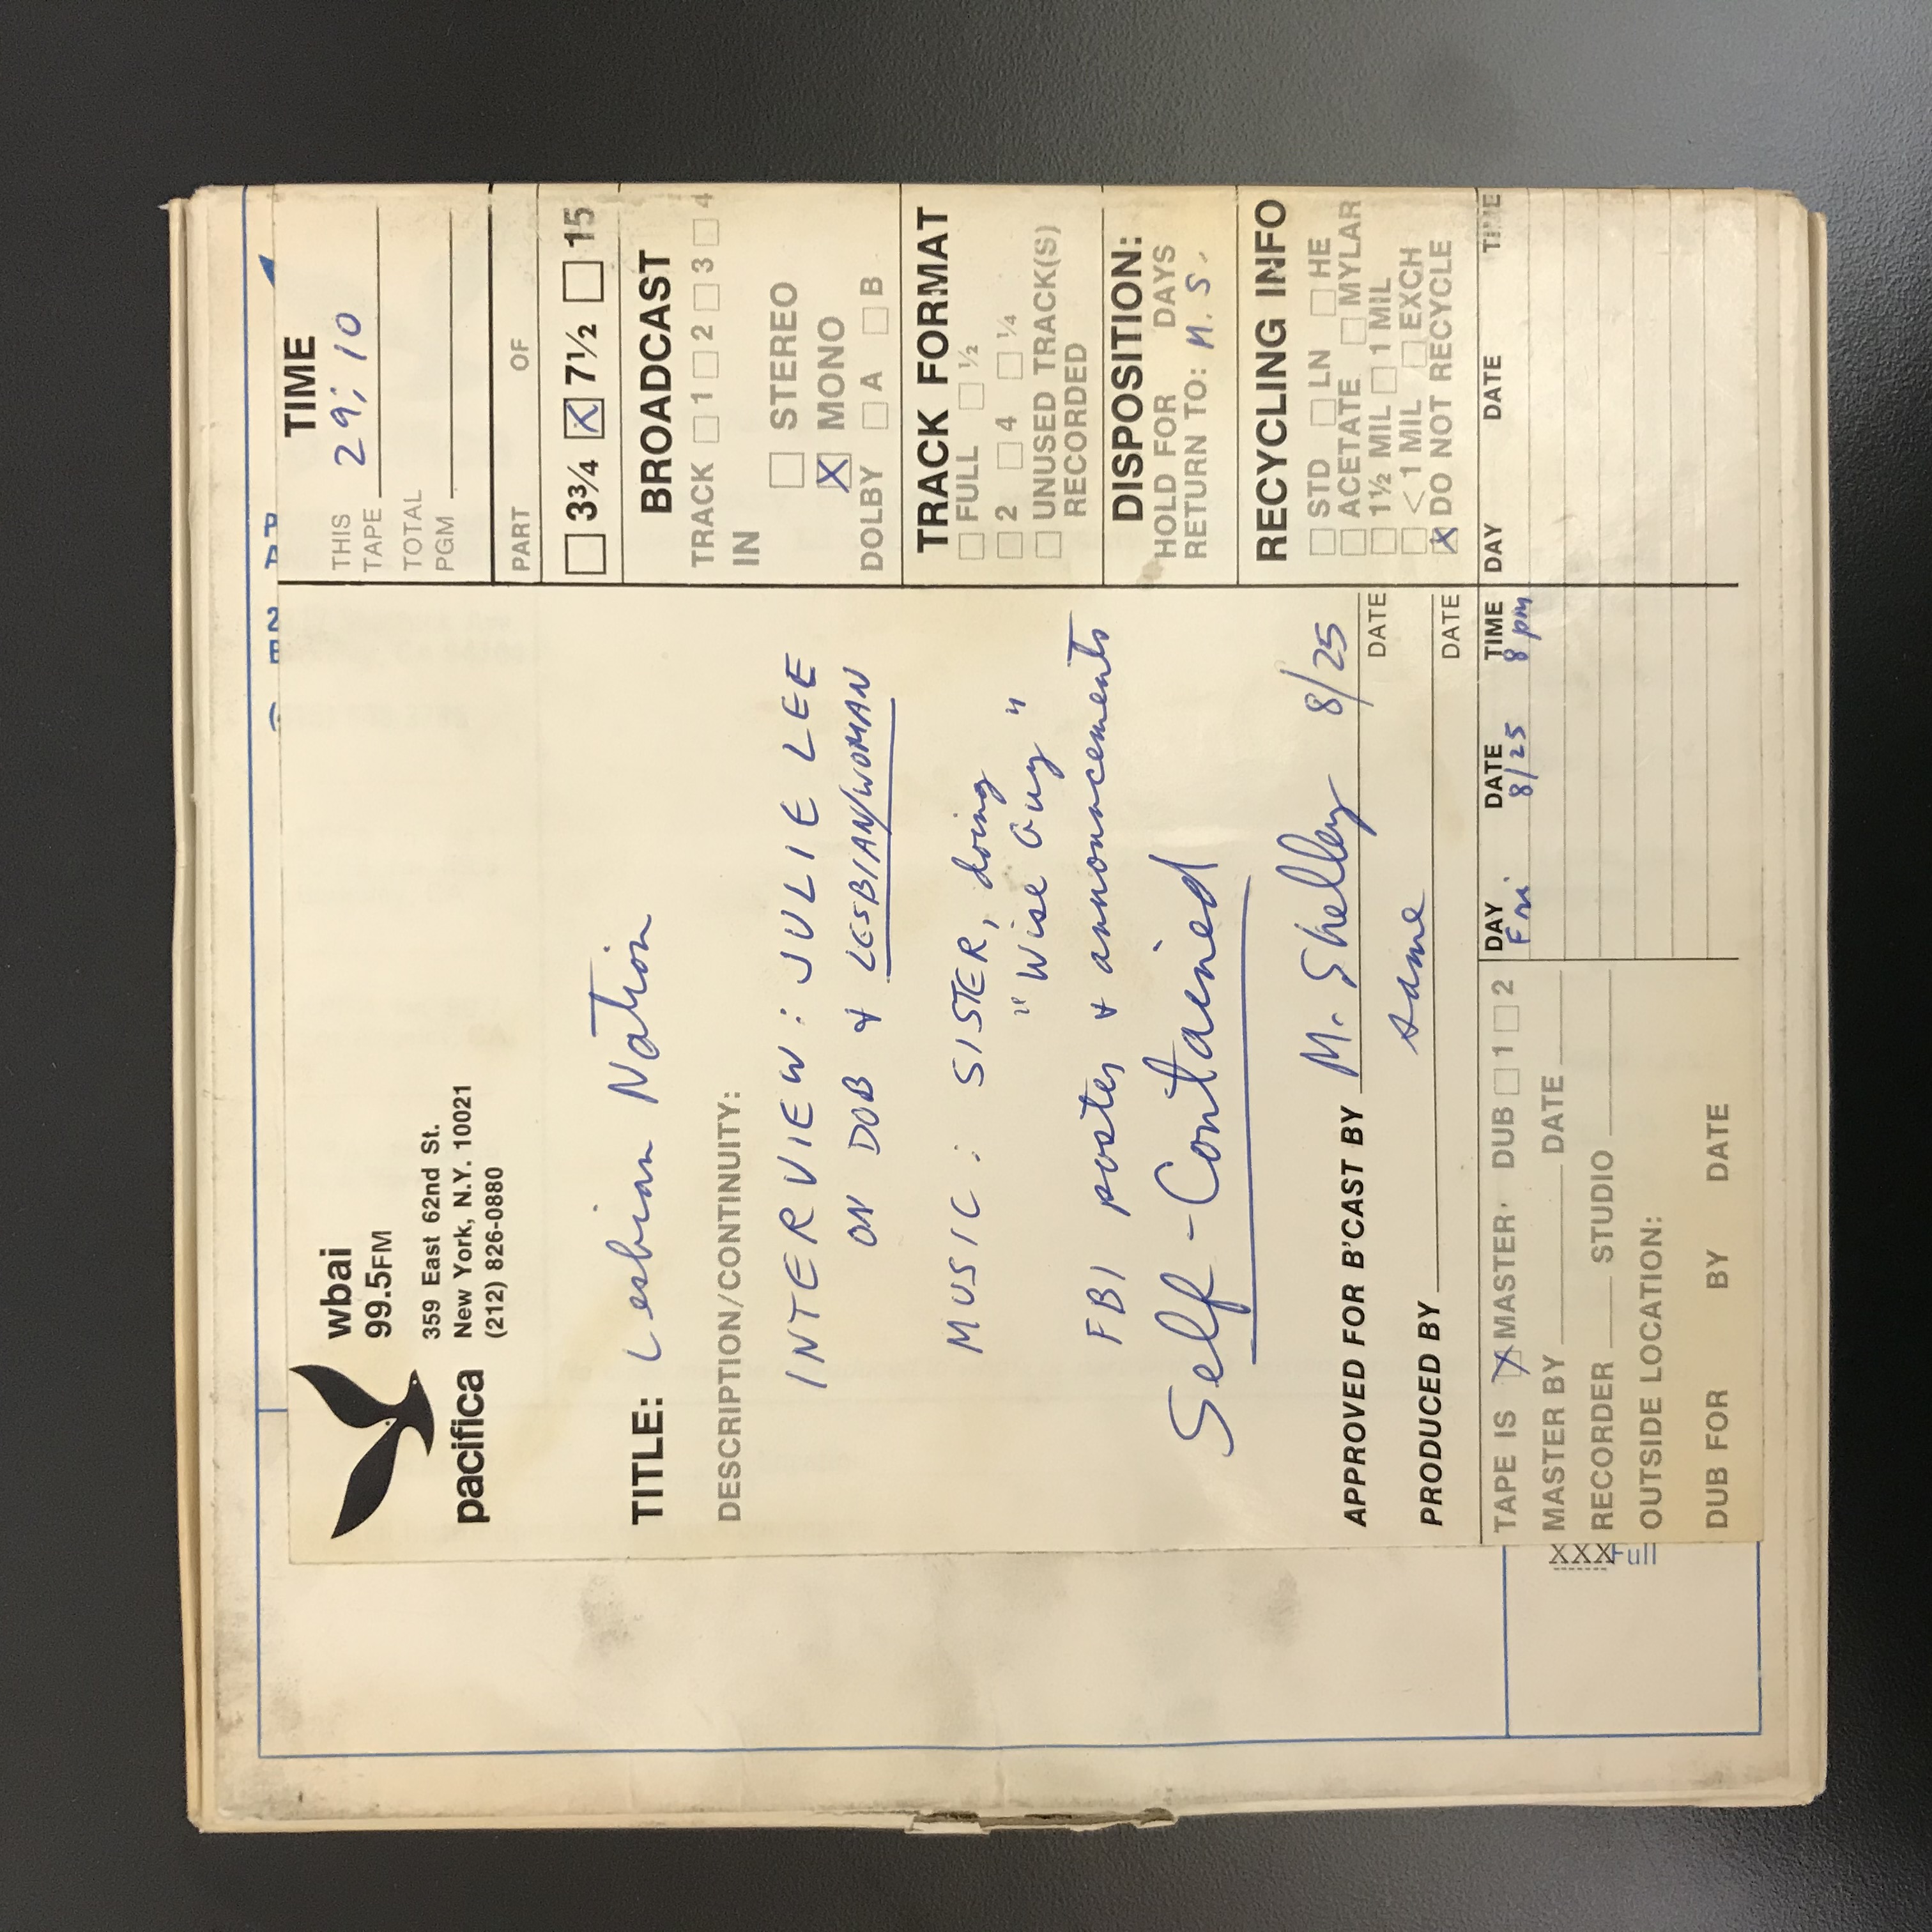 wbai
99.5FM
pacifica
359 East 62nd St.
New York, N.Y. 10021
(212) 826-0880
TITLE: Lesbian Nation
DESCRIPTION/CONTINUITY:
INTERVIEW: JULIE LEE
ON DOB & LESBIAN/WOMAN
MUSIC: SISTER, doing
"Wise Guy"
FBI poster & announcements
Self-Contained
APPROVED FOR B'CAST BY M. Shelley 8/25
DATE
PRODUCED BY same
DATE
TIME
THIS
TAPE 29:10
TOTAL
PGM
PART OF
☐ 3¾ ☒ 7½ ☐ 15
BROADCAST
TRACK ☐ 1 ☐ 2 ☐ 3 ☐ 4
IN
☐ STEREO
☒ MONO
DOLBY ☐ A ☐ B
TRACK FORMAT
☐ FULL ☐ ½
☐ 2 ☐ 4 ☐ ¼
☐ UNUSED TRACK(S)
RECORDED
DISPOSITION:
HOLD FOR DAYS
RETURN TO: M.S.
RECYCLING INFO
☐ STD ☐ LN ☐ HE
☐ ACETATE ☐ MYLAR
☐ 1½ MIL ☐ 1 MIL
☐ <1 MIL ☐ EXCH
☒ DO NOT RECYCLE
TAPE IS ☒ MASTER, DUB ☐ 1 ☐ 2
MASTER BY DATE
RECORDER STUDIO
OUTSIDE LOCATION:
DUB FOR BY DATE
DAY DATE TIME DAY DATE TIME
Fri 8/25 8 pm
XXX Full